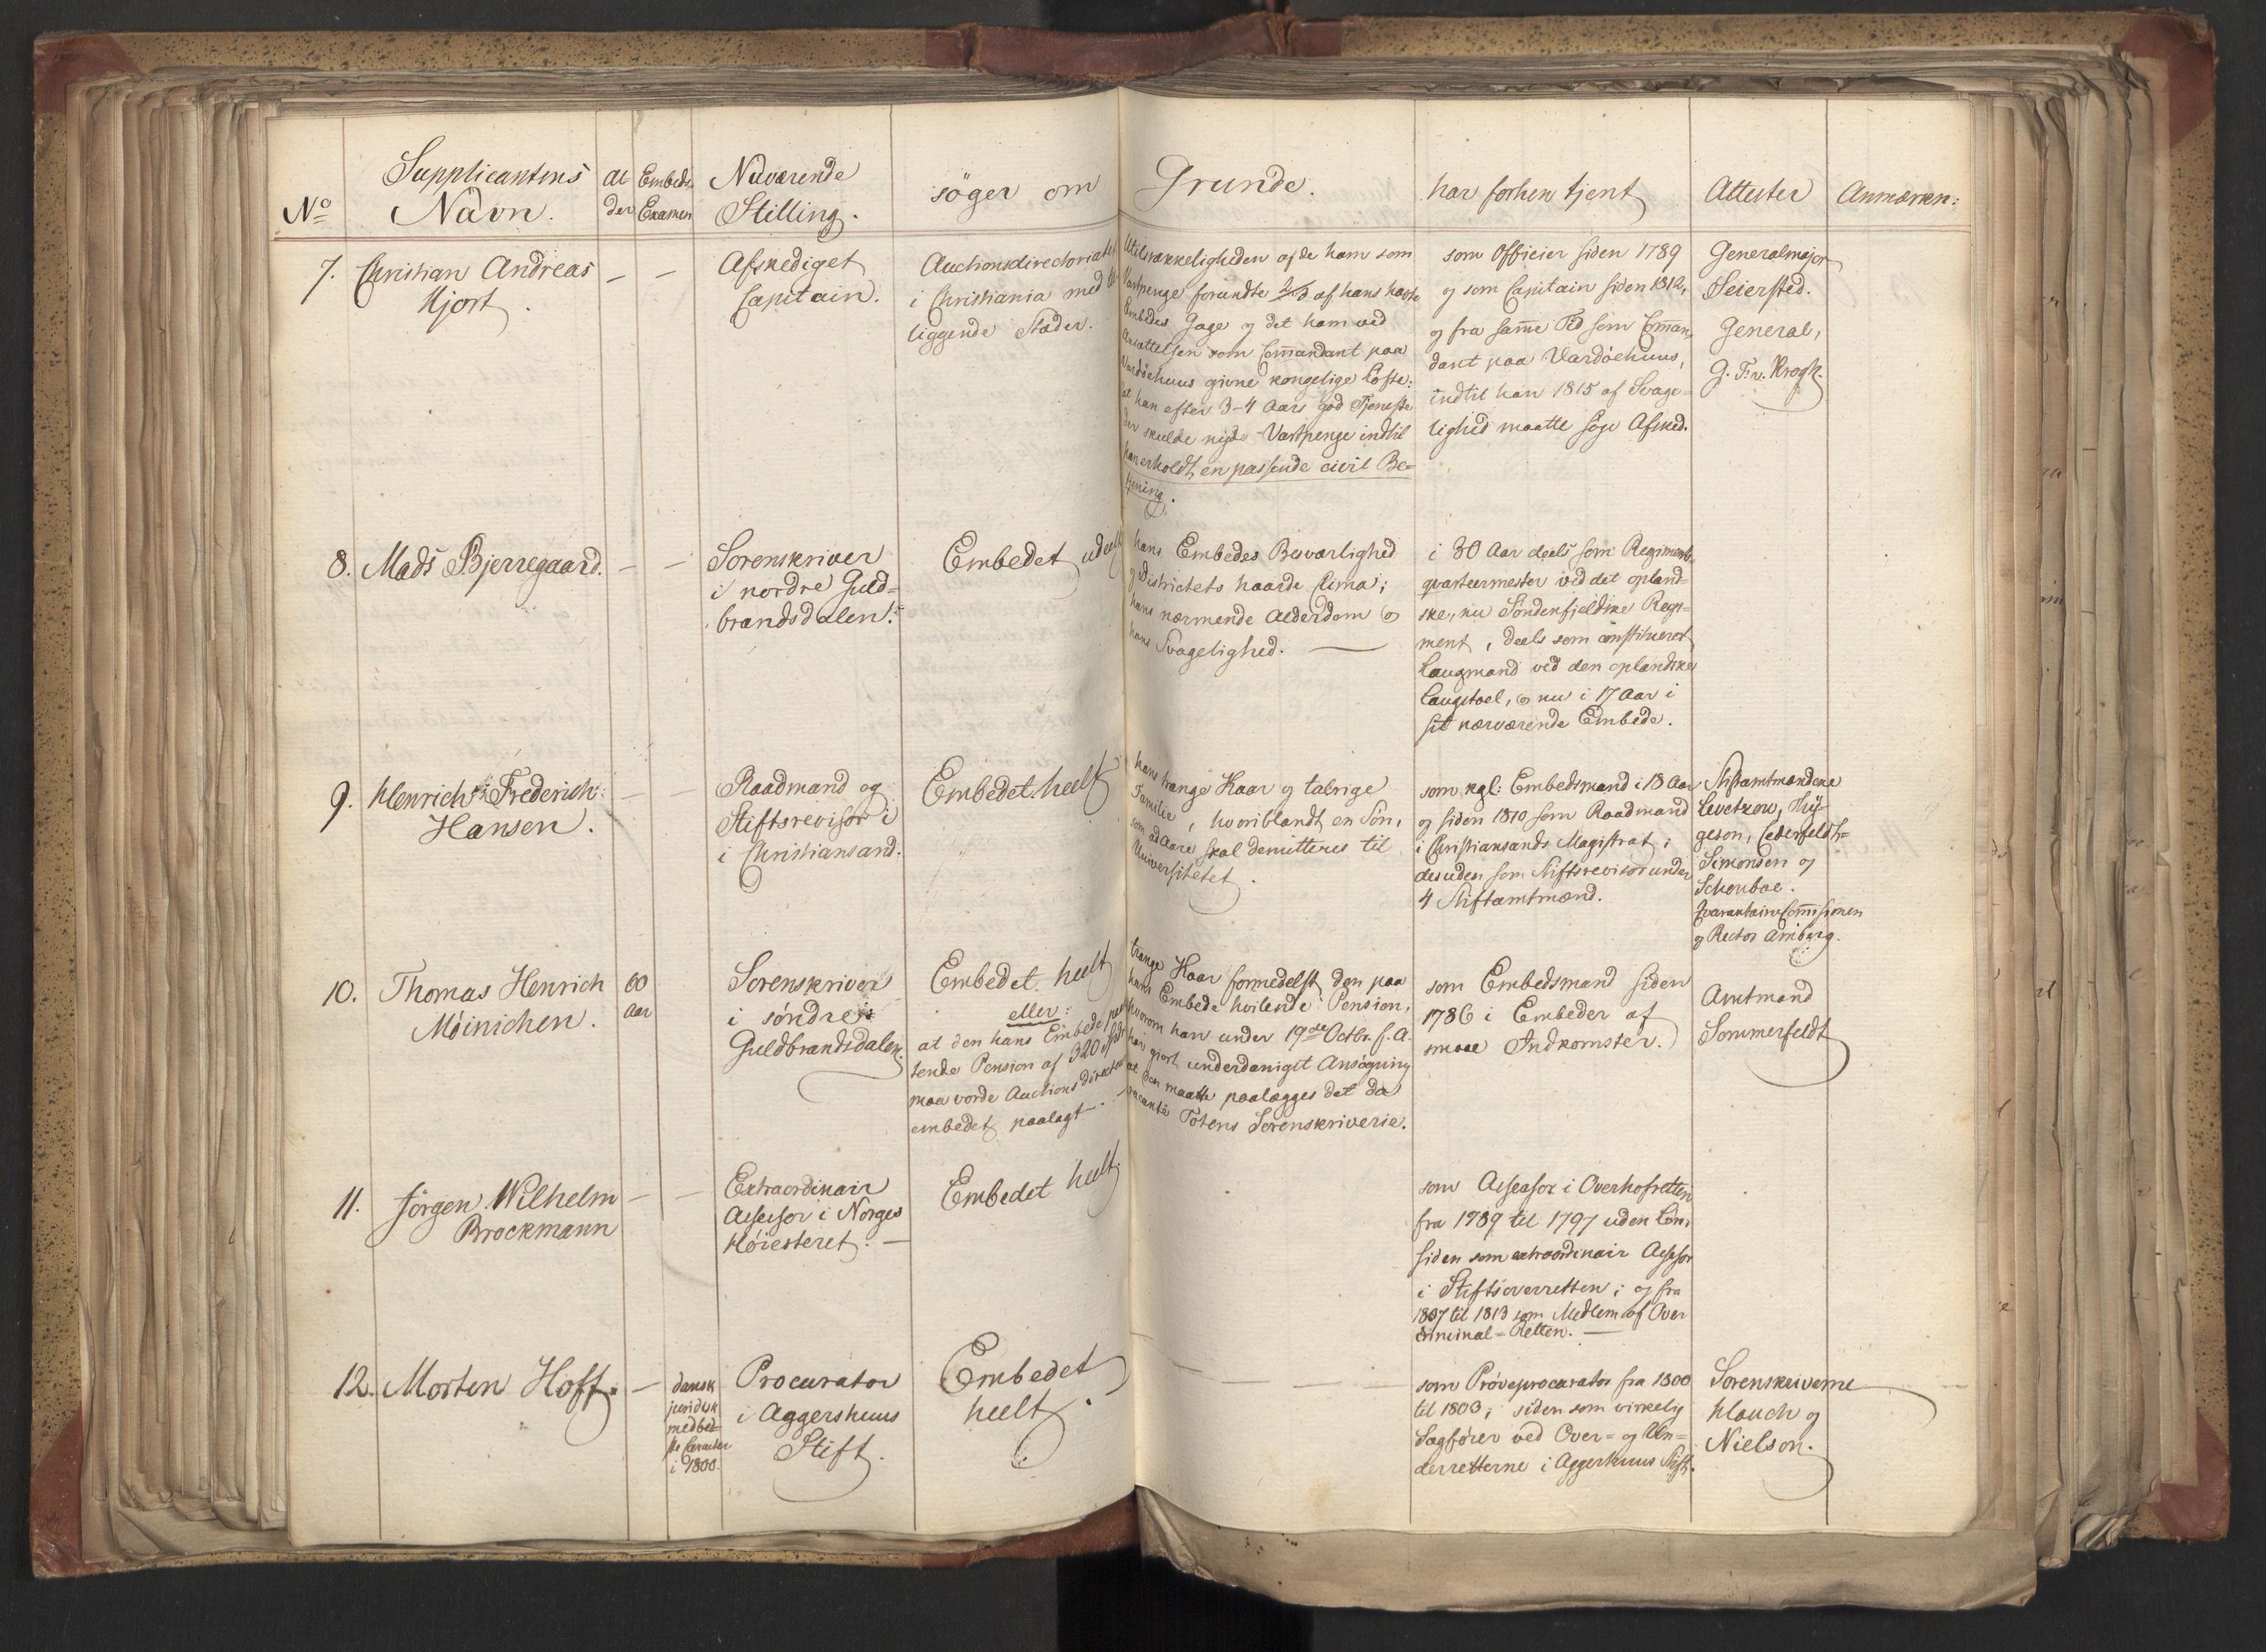 No
Supplicantens
Navn.
Al
der
Embeds
Examen
Nuværende
Stilling.
söger om
Grunde.
har forhen tjent
Attester
Anmærkn:
7. Christian Andreas
Hjort.
— —
Afskediget
Capitain.
Auctionsdirectoriatet
i Christiania med til
liggende Stæder.
Utilstrækkeligheden af de ham som
Vartpenge forundte 2/3 af hans havte
Embedes Gage og det ham ved
Ansættelsen som Commandant paa
Vardöehuus givne kongelige Löfte:
at han efter 3-4 Aars god Tjeneste
der skulde nyde Vartpenge indtil
han erholdt en passende civil Be=
tjening.
som Officier siden 1789
og som Capitain siden 1812,
og fra samme Tid som Comman,
dant paa Vardöehuus,
indtil han 1815 af Svage=
lighed maatte söge Afsked.
Generalmajor
Seiersted.
General,
G. F. v. Krogh.
8. Mads Bjerregaard.
— —
Sorenskriver
i nordre Guld=
brandsdalen.
Embedet udeelt
hans Embedes Besværlighed
og Districtets haarde Clima;
hans nærmende Alderdom og
hans Svagelighed. —
i 30 Aar deels som Regiments,
qvarteermester ved det opland=
ske, nu Söndenfjeldske Regi=
ment, deels som constitueret
Laugmand ved den oplandske
Laugstoel, og nu i 17 Aar i
sit nærværende Embede.
9. Henrich Frederich
Hansen.
— —
Raadmand og
Stiftsrevisor i
i Christiansand.
Embedet heelt
hans trange Kaar og talrige
Familie, hvoriblandt en Sön,
som ad Aare skal demitteres til
Universitetet.
som kgl: Embedsmand i 18 Aar
og siden 1810 som Raadmand
i Christiansands Magistrat;
desuden som Stiftsrevisor under
4 Stiftamtmænd.
Stiftamtmændene
Levetzow, Thy=
geson, Cederfeldt=
Simonsen og
Schouboe.
Qvarantaine Commissionen
og Rector Amberg.
10. Thomas Henrich
Möinichen.
60
Aar
Sorenskriver
i söndre
Guldbrandsdalen.
Embedet heelt
eller:
at den hans Embede paa
tende Pension af 320 Spdl
maa vorde Auctions directeur
embedet paalagt. —
trange Kaar formedelst den paa
hans Embede hvilende Pension,
hvorom han under 19de Octbr. f. A.
har gjort underdanigst Ansögning
at den maatte paalægges det da
vacante Totens Sorenskriverie.
som Embedsmand siden
1786 i Embeder af
smaae Indkomster.
Amtmand
Sommerfeldt
11. Jörgen Wilhelm
Brockmann
— —
Extraordinair
Assessor i Norges
Höiesteret. —
Embedet heelt
som Assessor i Overhofretten
fra 1789 til 1797 uden Lön,
siden som extraordinair Assessor
i Stiftsoverretten; og fra
1807 til 1813 som Medlem af Over
criminal=Retten. —
12. Morten Hoff.
—
dansk
juridisk
med bed=
ste Caracter
i 1800.
Procurator
i Aggershuus
Stift.
Embedet
heelt.
— — — —
som Pröveprocurator fra 1800
til 1803; siden som virkelig
Sagförer ved Over= og Un=
derretterne i Aggershuus Stift.
Sorenskriverne
Klouch og
Nielson.